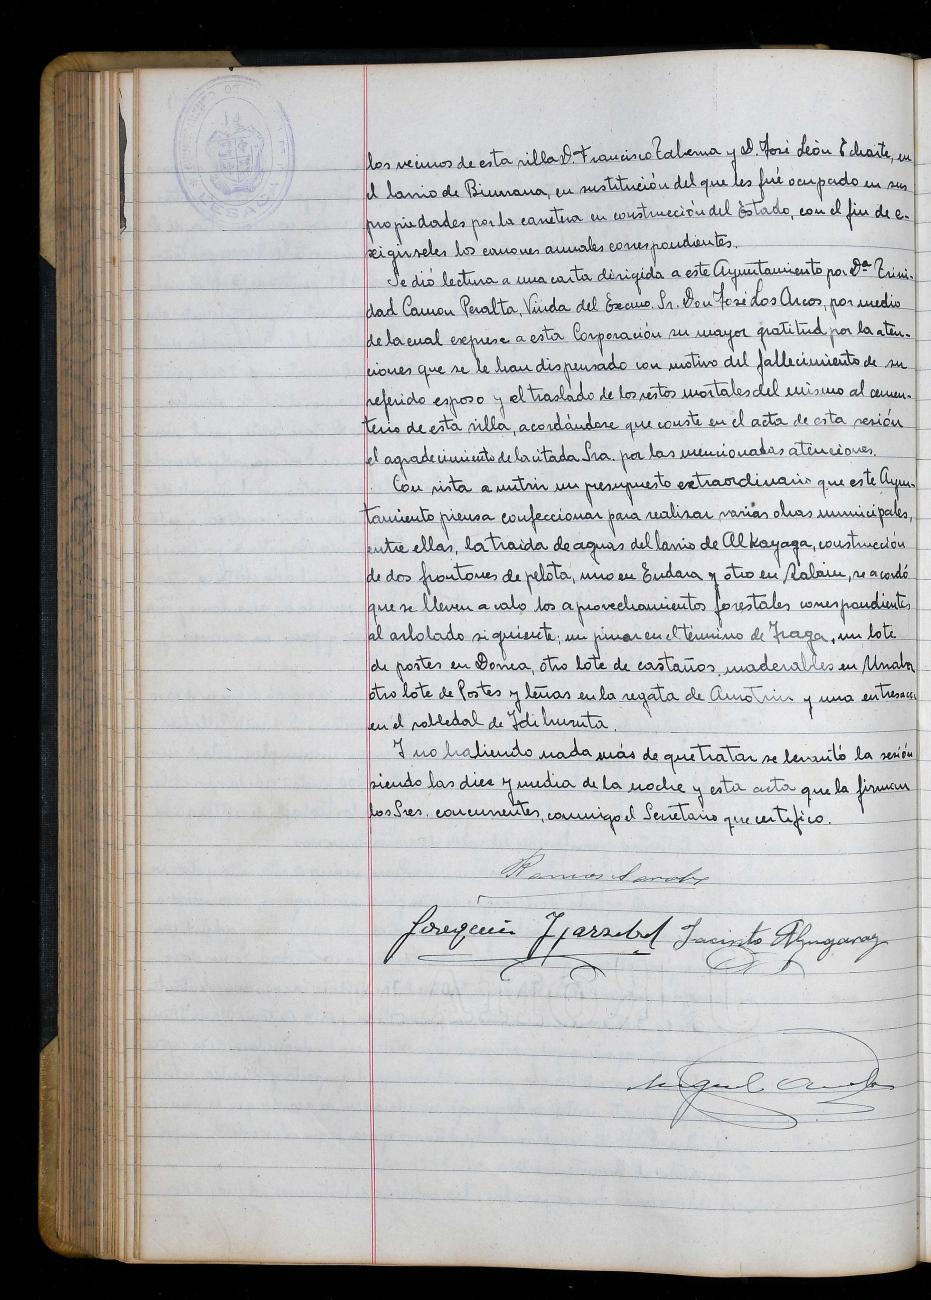 LESACA
los vecinos de esta villa D. Francisco Taberna y D. José León Echarte, en
el barrio de Biurrana, en sustitución del que les fué ocupado en sus
propiedades por la carretera en construcción del Estado, con el fin de e-
xigirseles los canones anuales correspondientes.
Se dió lectura a una carta dirigida a este Ayuntamiento por Dª Trini-
dad Camon Peralta, Viuda del Excmo. Sr. Don José Los Arcos, por medio
de la cual expresa a esta Corporación su mayor gratitud por la aten-
ciones que se le han dispensado con motivo del fallecimiento de su
referido esposo y el traslado de los restos mortales del mismo al cemen-
terio de esta villa, acordándose que conste en el acta de esta sesión
el agradecimiento de la citada Sra. por las mencionadas atenciones.
Con vista a nutrir un presupuesto extraordinario que este Ayun-
tamiento piensa confeccionar para realizar varias obras municipales,
entre ellas, la traida de aguas del barrio de Alkayaga, construcción
de dos frontones de pelota, uno en Endara y otro en Zalain, se acordó
que se lleven a cabo los aprovechamientos forestales correspondientes
al arbolado siguiente; un pinar en el término de Fraga, un lote
de postes en Donea, otro lote de castaños, maderables en
otro lote de Postes y leñas en la regata de y una entresaca
en el robledal de
Y no habiendo nada más de que tratar se levantó la sesión
siendo las diez y media de la noche y esta acta que la firman
los Sres. concurrentes, conmigo el Secretario que certifico.
Ramon
Joaquin Jacinto Alzugaray
Miguel